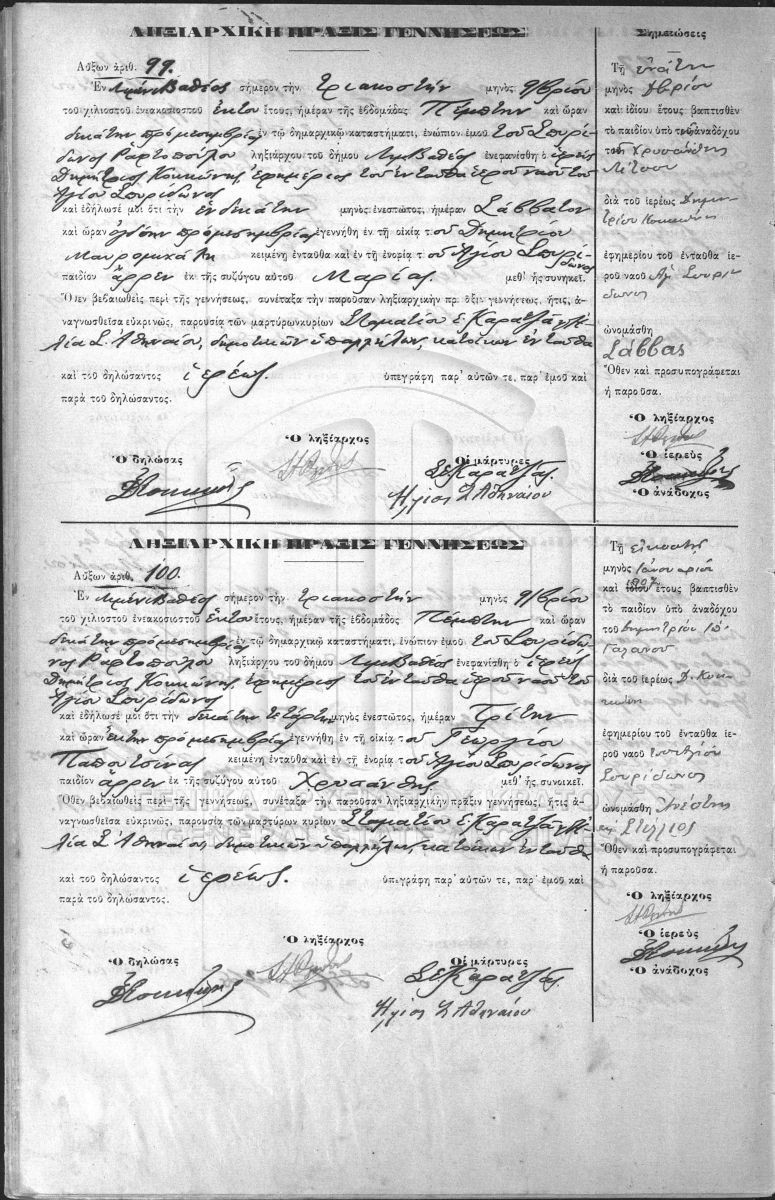 ΛΗΞΙΑΡΧΙΚΗ ΠΡΑΞΙΣ ΓΕΝΝΗΣΕΩΣ
Αὔξων ἀριθ. 99.
Ἐν Λιμένι Βαθέος σήμερον τὴν τριακοστήν μηνὸς 9/βρίου
τοῦ χιλιοστοῦ ἐνεακοσιοστοῦ ἕκτου ἔτους, ἡμέραν τῆς ἑβδομάδος Πέμπτην καὶ ὥραν
δεκάτην πρό μεσημβρίας ἐν τῷ δημαρχικῷ καταστήματι, ἐνώπιον ἐμοῦ τοῦ Σπυρί-
δωνος Ραρτοπούλου ληξιάρχου τοῦ δήμου Λιμ Βαθέος ἐνεφανίσθη ὁ ἱερεύς
Δημήτριος Κουκώνης, ἐφημέριος τοῦ ἐνταῦθα ἱεροῦ ναοῦ τοῦ
Ἁγίου Σπυρίδωνος
καὶ ἐδήλωσέ μοι ὅτι τὴν ἑνδεκάτην μηνὸς ἐνεστῶτος, ἡμέραν Σάββατον
καὶ ὥραν ὀγδόην πρό μεσημβρίας ἐγεννήθη ἐν τῇ οἰκίᾳ τοῦ Δημητρίου
Μαυρομικάλη κειμένῃ ἐνταῦθα καὶ ἐν τῇ ἐνορίᾳ τοῦ Ἁγίου Σπυρίδωνος
παιδίον ἄρρεν ἐκ τῆς συζύγου αὐτοῦ Μαρίας. μεθ' ἧς συνῃκεῖ.
Ὅθεν βεβαιωθεὶς περὶ τῆς γεννήσεως, συνέταξα τὴν παροῦσαν ληξιαρχικὴν πρᾶξιν γεννήσεως, ἥτις, ἀ-
ναγνωσθεῖσα εὐκρινῶς, παρουσίᾳ τῶν μαρτύρων κυρίων Σταματίου Ε. Καρατζᾶ καί Ἠ-
λία Σ. Ἀθηναίου, δημοτικῶν ὑπαλλήλων, κατοίκων ἐνταῦθα
καὶ τοῦ δηλώσαντος ἱερέως. ὑπεγράφη παρ' αὐτῶν τε, παρ' ἐμοῦ καὶ
παρὰ τοῦ δηλώσαντος.
Ὁ ληξίαρχος
Ὁ δηλώσας Οἱ μάρτυρες
Δ Κουκώνης Σ Ε Καρατζᾶς
Ἠλίας Σ Ἀθηναίου
Σημειώσεις
Τῇ ἐνάτῃ
μηνὸς 9βρίου
καὶ ἰδίου ἔτους βαπτισθὲν
τὸ παιδίον ὑπὸ τοῦ ἀναδόχου
τοῦ Χρυσάνθης
διὰ τοῦ ἱερέως Δημη-
τρίου Κουκώνη
ἐφημερίου τοῦ ἐνταῦθα ἱε-
ροῦ ναοῦ Ἁγ Σπυρί-
δωνος
ὠνομάσθη
Σάββας
Ὅθεν καὶ προσυπογράφεται
ἡ παροῦσα.
Ὁ ληξίαρχος
Ὁ ἱερεὺς
Δ Κουκώνης
Ὁ ἀνάδοχος
ΛΗΞΙΑΡΧΙΚΗ ΠΡΑΞΙΣ ΓΕΝΝΗΣΕΩΣ
Αὔξων ἀριθ. 100.
Ἐν Λιμένι Βαθέος σήμερον τὴν τριακοστήν μηνὸς 9/βρίου
τοῦ χιλιοστοῦ ἐνεακοσιοστοῦ ἕκτου ἔτους, ἡμέραν τῆς ἑβδομάδος Πέμπτην καὶ ὥραν
δεκάτην πρό μεσημβρίας ἐν τῷ δημαρχικῷ καταστήματι, ἐνώπιον ἐμοῦ τοῦ Σπυρίδω-
νος Ραρτοπούλου ληξιάρχου τοῦ δήμου Λιμ Βαθέος ἐνεφανίσθη ὁ ἱερεύς
Δημήτριος Κουκώνης, ἐφημέριος τοῦ ἐνταῦθα ἱεροῦ ναοῦ τοῦ
Ἁγίου Σπυρίδωνος
καὶ ἐδήλωσέ μοι ὅτι τὴν δεκάτην τετάρτην μηνὸς ἐνεστῶτος, ἡμέραν Τρίτην
καὶ ὥραν ἕκτην πρό μεσημβρίας ἐγεννήθη ἐν τῇ οἰκίᾳ τοῦ Γεωργίου
Παπουτσίνας κειμένῃ ἐνταῦθα καὶ ἐν τῇ ἐνορίᾳ τοῦ Ἁγίου Σπυρίδωνος
παιδίον ἄρρεν ἐκ τῆς συζύγου αὐτοῦ Χρυσάνθης. μεθ' ἧς συνοικεῖ.
Ὅθεν βεβαιωθεὶς περὶ τῆς γεννήσεως, συνέταξα τὴν παροῦσαν ληξιαρχικὴν πρᾶξιν γεννήσεως, ἥτις ἀ-
ναγνωσθεῖσα εὐκρινῶς, παρουσίᾳ τῶν μαρτύρων κυρίων Σταματίου Ε. Καρατζᾶ καί Ἠ-
λία Σ. Ἀθηναίου, δημοτικῶν ὑπαλλήλων, κατοίκων ἐνταῦθα
καὶ τοῦ δηλώσαντος ἱερέως. ὑπεγράφη παρ' αὐτῶν τε, παρ' ἐμοῦ καὶ
παρὰ τοῦ δηλώσαντος.
Ὁ ληξίαρχος
Ὁ δηλώσας Οἱ μάρτυρες
Δ Κουκώνης Σ Ε Καρατζᾶς
Ἠλίας Σ Ἀθηναίου
Τῇ εἰκοστῇ
μηνὸς Ἰανουαρίου
1907
καὶ ἰδίου ἔτους βαπτισθὲν
τὸ παιδίον ὑπὸ ἀναδόχου
τοῦ Δημητρίου
Γαλανοῦ
διὰ τοῦ ἱερέως Δ. Κου-
κώνη
ἐφημερίου τοῦ ἐνταῦθα ἱε-
ροῦ ναοῦ τοῦ Ἁγίου
Σπυρίδωνος
ὠνομάσθη Ἀνέστης
Ὅθεν καὶ προσυπογράφεται
ἡ παροῦσα.
Ὁ ληξίαρχος
Ὁ ἱερεὺς
Δ Κουκώνης
Ὁ ἀνάδοχος